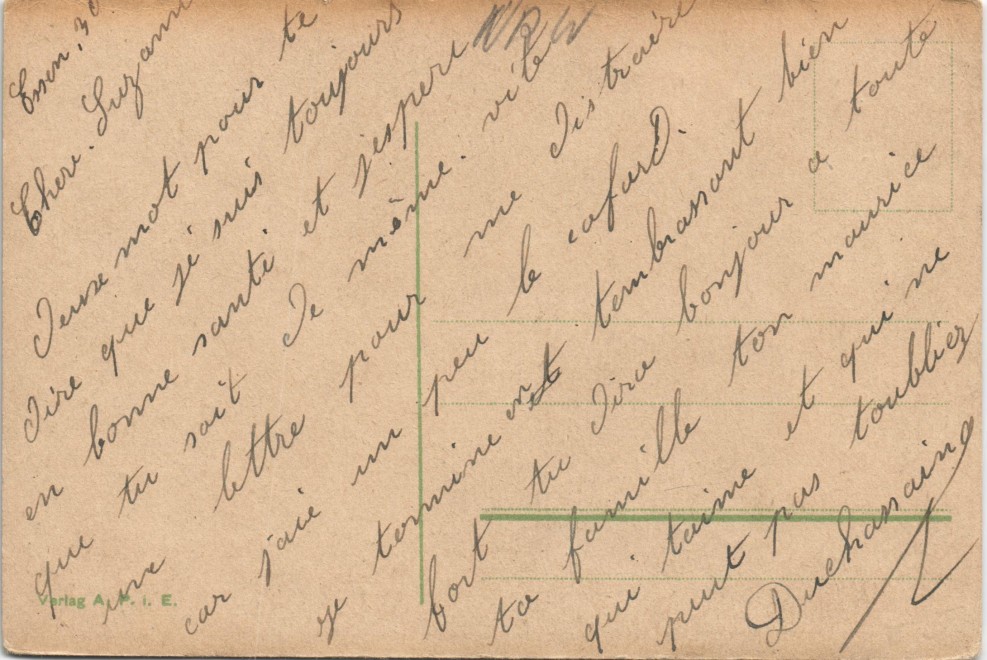 Essen, 30
Chere. Suzann
Deuxe mot pour te
dire que je suis toujours
en bonne santé et j'espert
que tu sait De même. vite
une lettre pour me distraire
car j'aie un peu le cafard.
je termine en tembrassant bien
fort tu dira bonjour a toute
ta famille ton maurice
qui taime et qui ne
peut pas toubliez
Duchassaing
NRW
Verlag A. P. i. E.